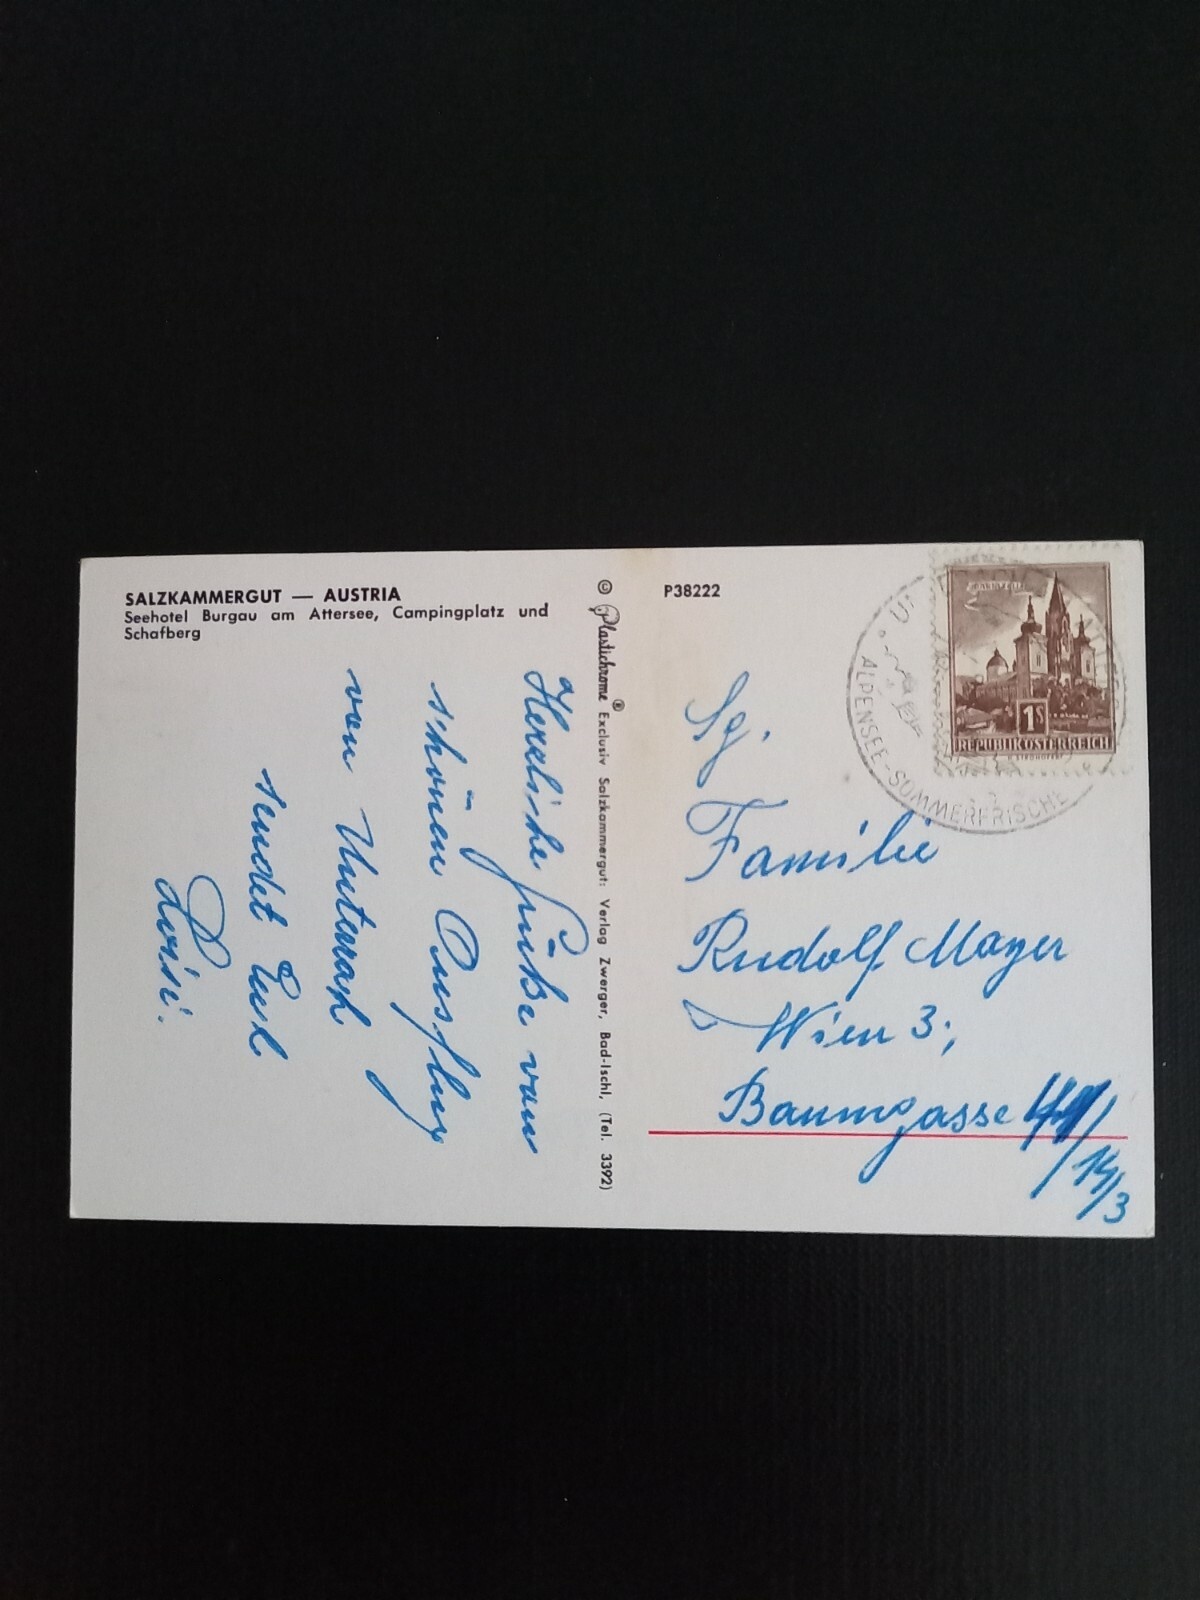 SALZKAMMERGUT — AUSTRIA
Seehotel Burgau am Attersee, Campingplatz und
Schafberg
Herzliche Grüße vom
schönen Ausflug
von Unterach
sendet Euch
Loisi.
© Plastichrome® Exclusiv Salzkammergut: Verlag Zwerger, Bad-Ischl, (Tel. 3392)
P38222
MARIAZELL
1S
REPUBLIK ÖSTERREICH
ALPENSEE-SOMMERFRISCHE
Sg.
Familie
Rudolf Mayer
Wien 3;
Baumgasse
14/3